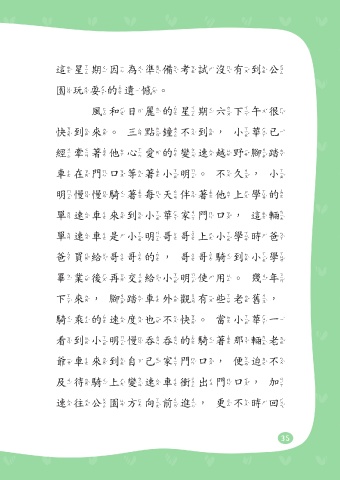 這星期因為準備考試沒有到公
園玩耍的遺憾。
風和日麗的星期六下午很
快到來。三點鐘不到，小華已
經牽著他心愛的變速越野腳踏
車在門口等著小明。不久，小
明慢慢騎著每天伴著他上學的
單速車來到小華家門口，這輛
單速車是小明哥哥上小學時爸
爸買給哥哥的，哥哥騎到小學
畢業後再交給小明使用。幾年
下來，腳踏車外觀有些老舊，
騎乘的速度也不快。當小華一
看到小明慢吞吞的騎著那輛老
爺車來到自己家門口，便迫不
及待騎上變速車衝出門口，加
速往公園方向前進，更不時回
35